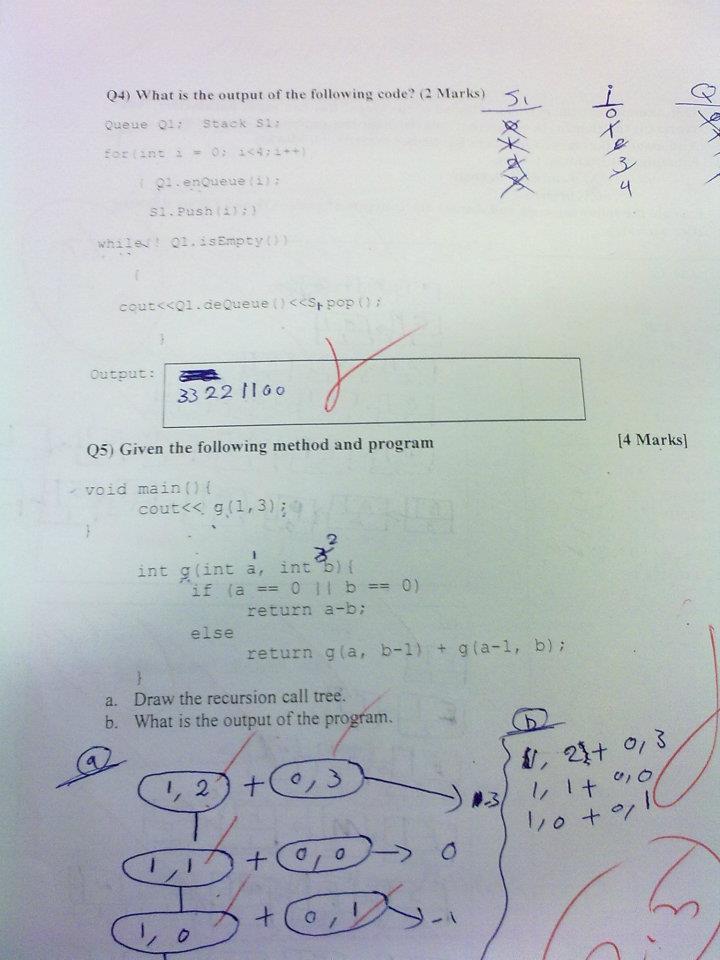 Q4) What is the output of the following code? (2 Marks)
S1 i Q
Queue Q1; Stack S1;
0 0
for(int i = 0; i<4;i++)
1 1
2 2
{ Q1.enQueue(i);
3 3
S1.Push(i);}
4
while(! Q1.isEmpty())
{
cout<<Q1.deQueue()<<S1.pop();
}
Output:
33 22 11 00
Q5) Given the following method and program [4 Marks]
void main(){
cout<< g(1,3);
}
1 3 2
int g(int a, int b){
if (a == 0 || b == 0)
return a-b;
else
return g(a, b-1) + g(a-1, b);
}
a. Draw the recursion call tree.
b. What is the output of the program.
a
b
1, 2 + 0, 3 -3
1, 2 + 0, 3
1, 1 + 0, 0
1, 0 + 0, 1
1, 1 + 0, 0 → 0
1, 0 + 0, 1 → -1